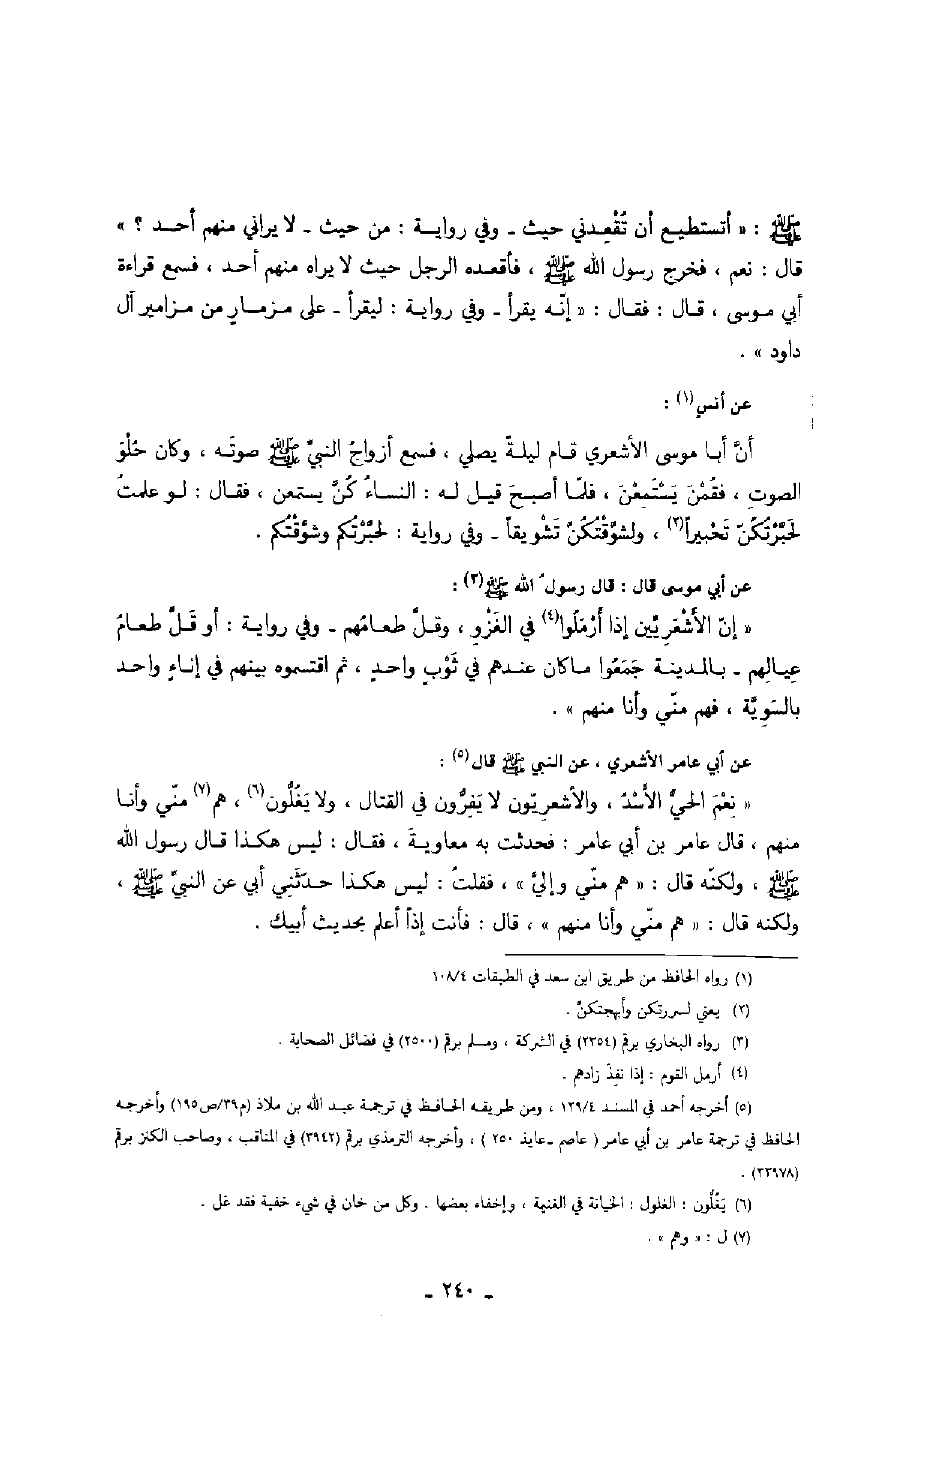 ﷺ : « أتستطيع أن تُقْعِدني حيث ـ وفي رواية : من حيث ـ لا يراني منهم أحد ؟ »
قال : نعم ، فخرج رسول الله ﷺ ، فأقعده الرجل حيث لا يراه منهم أحد ، فسمع قراءة
أبي موسى ، قال : فقال : « إنّه يقرأ ـ وفي رواية : ليقرأ ـ على مزمارٍ من مزامير آل
داود » .
عن أنس(١) :
أنَّ أبا موسى الأشعري قام ليلةً يصلي ، فسمع أزواجُ النبيِّ ﷺ صوتَه ، وكان حُلْوَ
الصوتِ ، فقُمْنَ يَسْتَمِعْنَ ، فلمّا أصبحَ قيل له : النساءُ كُنَّ يستمعن ، فقال : لو علمتُ
لَحَبَّرْتُكُنّ تَحْبيراً(٢) ، ولشوَّقْتُكُنَّ تَشْويقاً ـ وفي رواية : لحَبَّرْتُكم وشوَّقْتُكم .
عن أبي موسى قال : قال رسولُ الله ﷺ(٣) :
« إنّ الأشْعَريّين إذا أَرْمَلُوا(٤) في الغَزْوِ ، وقلَّ طعامُهم ـ وفي رواية : أو قَلَّ طعامُ
عيالِهم ـ بالمدينة جَمَعُوا ماكان عندهم في ثَوْبٍ واحدٍ ، ثم اقتسموه بينهم في إناءٍ واحد
بالسَّويَّة ، فهم منّي وأنا منهم » .
عن أبي عامر الأشعري ، عن النبي ﷺ قال(٥) :
« نِعْمَ الحيُّ الأَسْدُ ، والأشعريّون لا يَفِرُّون في القتال ، ولا يَغُلُّون(٦) ، هم(٧) منّي وأنا
منهم ، قال عامر بن أبي عامر : فحدثت به معاويةَ ، فقال : ليس هكذا قال رسول الله
ﷺ ، ولكنّه قال : « هم منّي وإليَّ » ، فقلتُ : ليس هكذا حدثَني أبي عن النبيِّ ﷺ ،
ولكنه قال : « هم منّي وأنا منهم » ، قال : فأنت إذاً أعلم بحديث أبيك .
(١) رواه الحافظ من طريق ابن سعد في الطبقات ١٠٨/٤
(٢) يعني لسررتكن وأبهجتكنّ .
(٣) رواه البخاري برقم (٢٣٥٤) في الشركة ، ومسلم برقم (٢٥٠٠) في فضائل الصحابة .
(٤) أرمل القوم : إذا نفذَ زادهم .
(٥) أخرجه أحمد في المسند ١٢٩/٤ ، ومن طريقه الحافظ في ترجمة عبد الله بن ملاذ (م٣٩/ص١٩٥) وأخرجه
الحافظ في ترجمة عامر بن أبي عامر ( عاصم ـ عايذ ٢٥٠ ) ، وأخرجه الترمذي برقم (٣٩٤٢) في المناقب ، وصاحب الكنز برقم
(٣٣٩٧٨) .
(٦) يَغُلُّون : الغلول : الخيانة في الغنية ، وإخفاء بعضها . وكل من خان في شيء خفية فقد غل .
(٧) ل : « وهم » .
ـ ٢٤٠ ـ